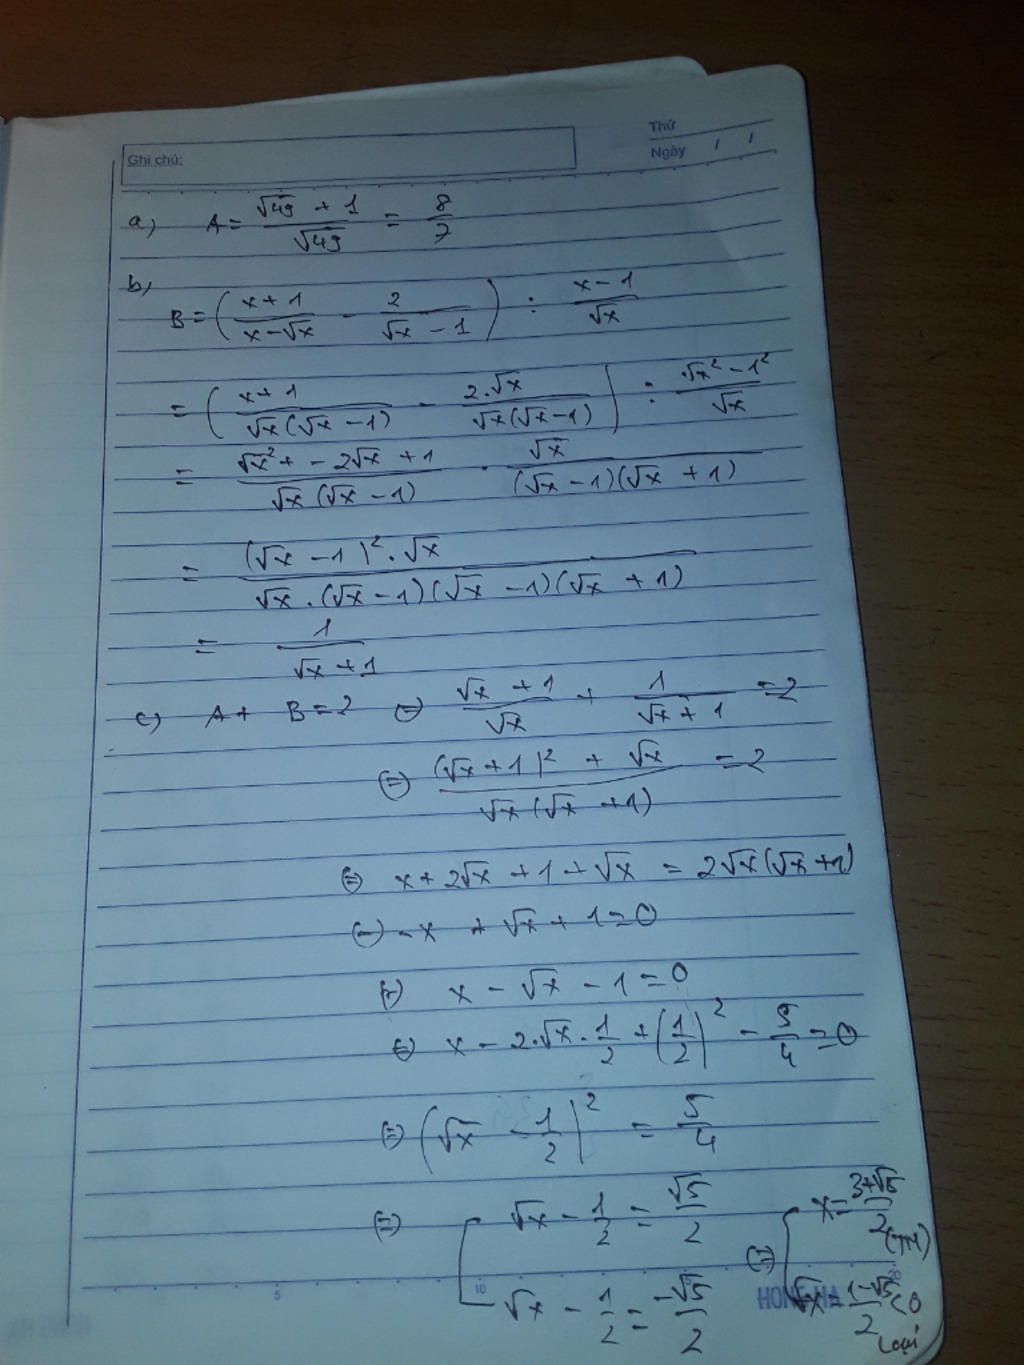 Thứ
Ghi chú:
Ngày / /
a) A = (√49 + 1)/√49 = 8/7
b)
B = ((x + 1)/(x - √x) - 2/(√x - 1)) : (x - 1)/√x
= ((x + 1)/(√x(√x - 1)) - 2.√x/(√x(√x - 1))) : (√x² - 1²)/√x
= (√x² + - 2√x + 1)/(√x(√x - 1)) . √x/((√x - 1)(√x + 1))
= ((√x - 1)² . √x)/(√x . (√x - 1)(√x - 1)(√x + 1))
= 1/(√x + 1)
c) A + B = 2 (=) (√x + 1)/√x + 1/(√x + 1) = 2
(=) ((√x + 1)² + √x)/(√x(√x + 1)) = 2
(=) x + 2√x + 1 + √x = 2√x(√x + 1)
(=) - x + √x + 1 = 0
(=) x - √x - 1 = 0
(=) x - 2.√x . 1/2 + (1/2)² - 5/4 = 0
(=) (√x - 1/2)² = 5/4
(=) [ √x - 1/2 = √5/2 (=) [ x = (3 + √5)/2 (TM)
√x - 1/2 = -√5/2 √x = (1 - √5)/2 < 0 loại
5 10